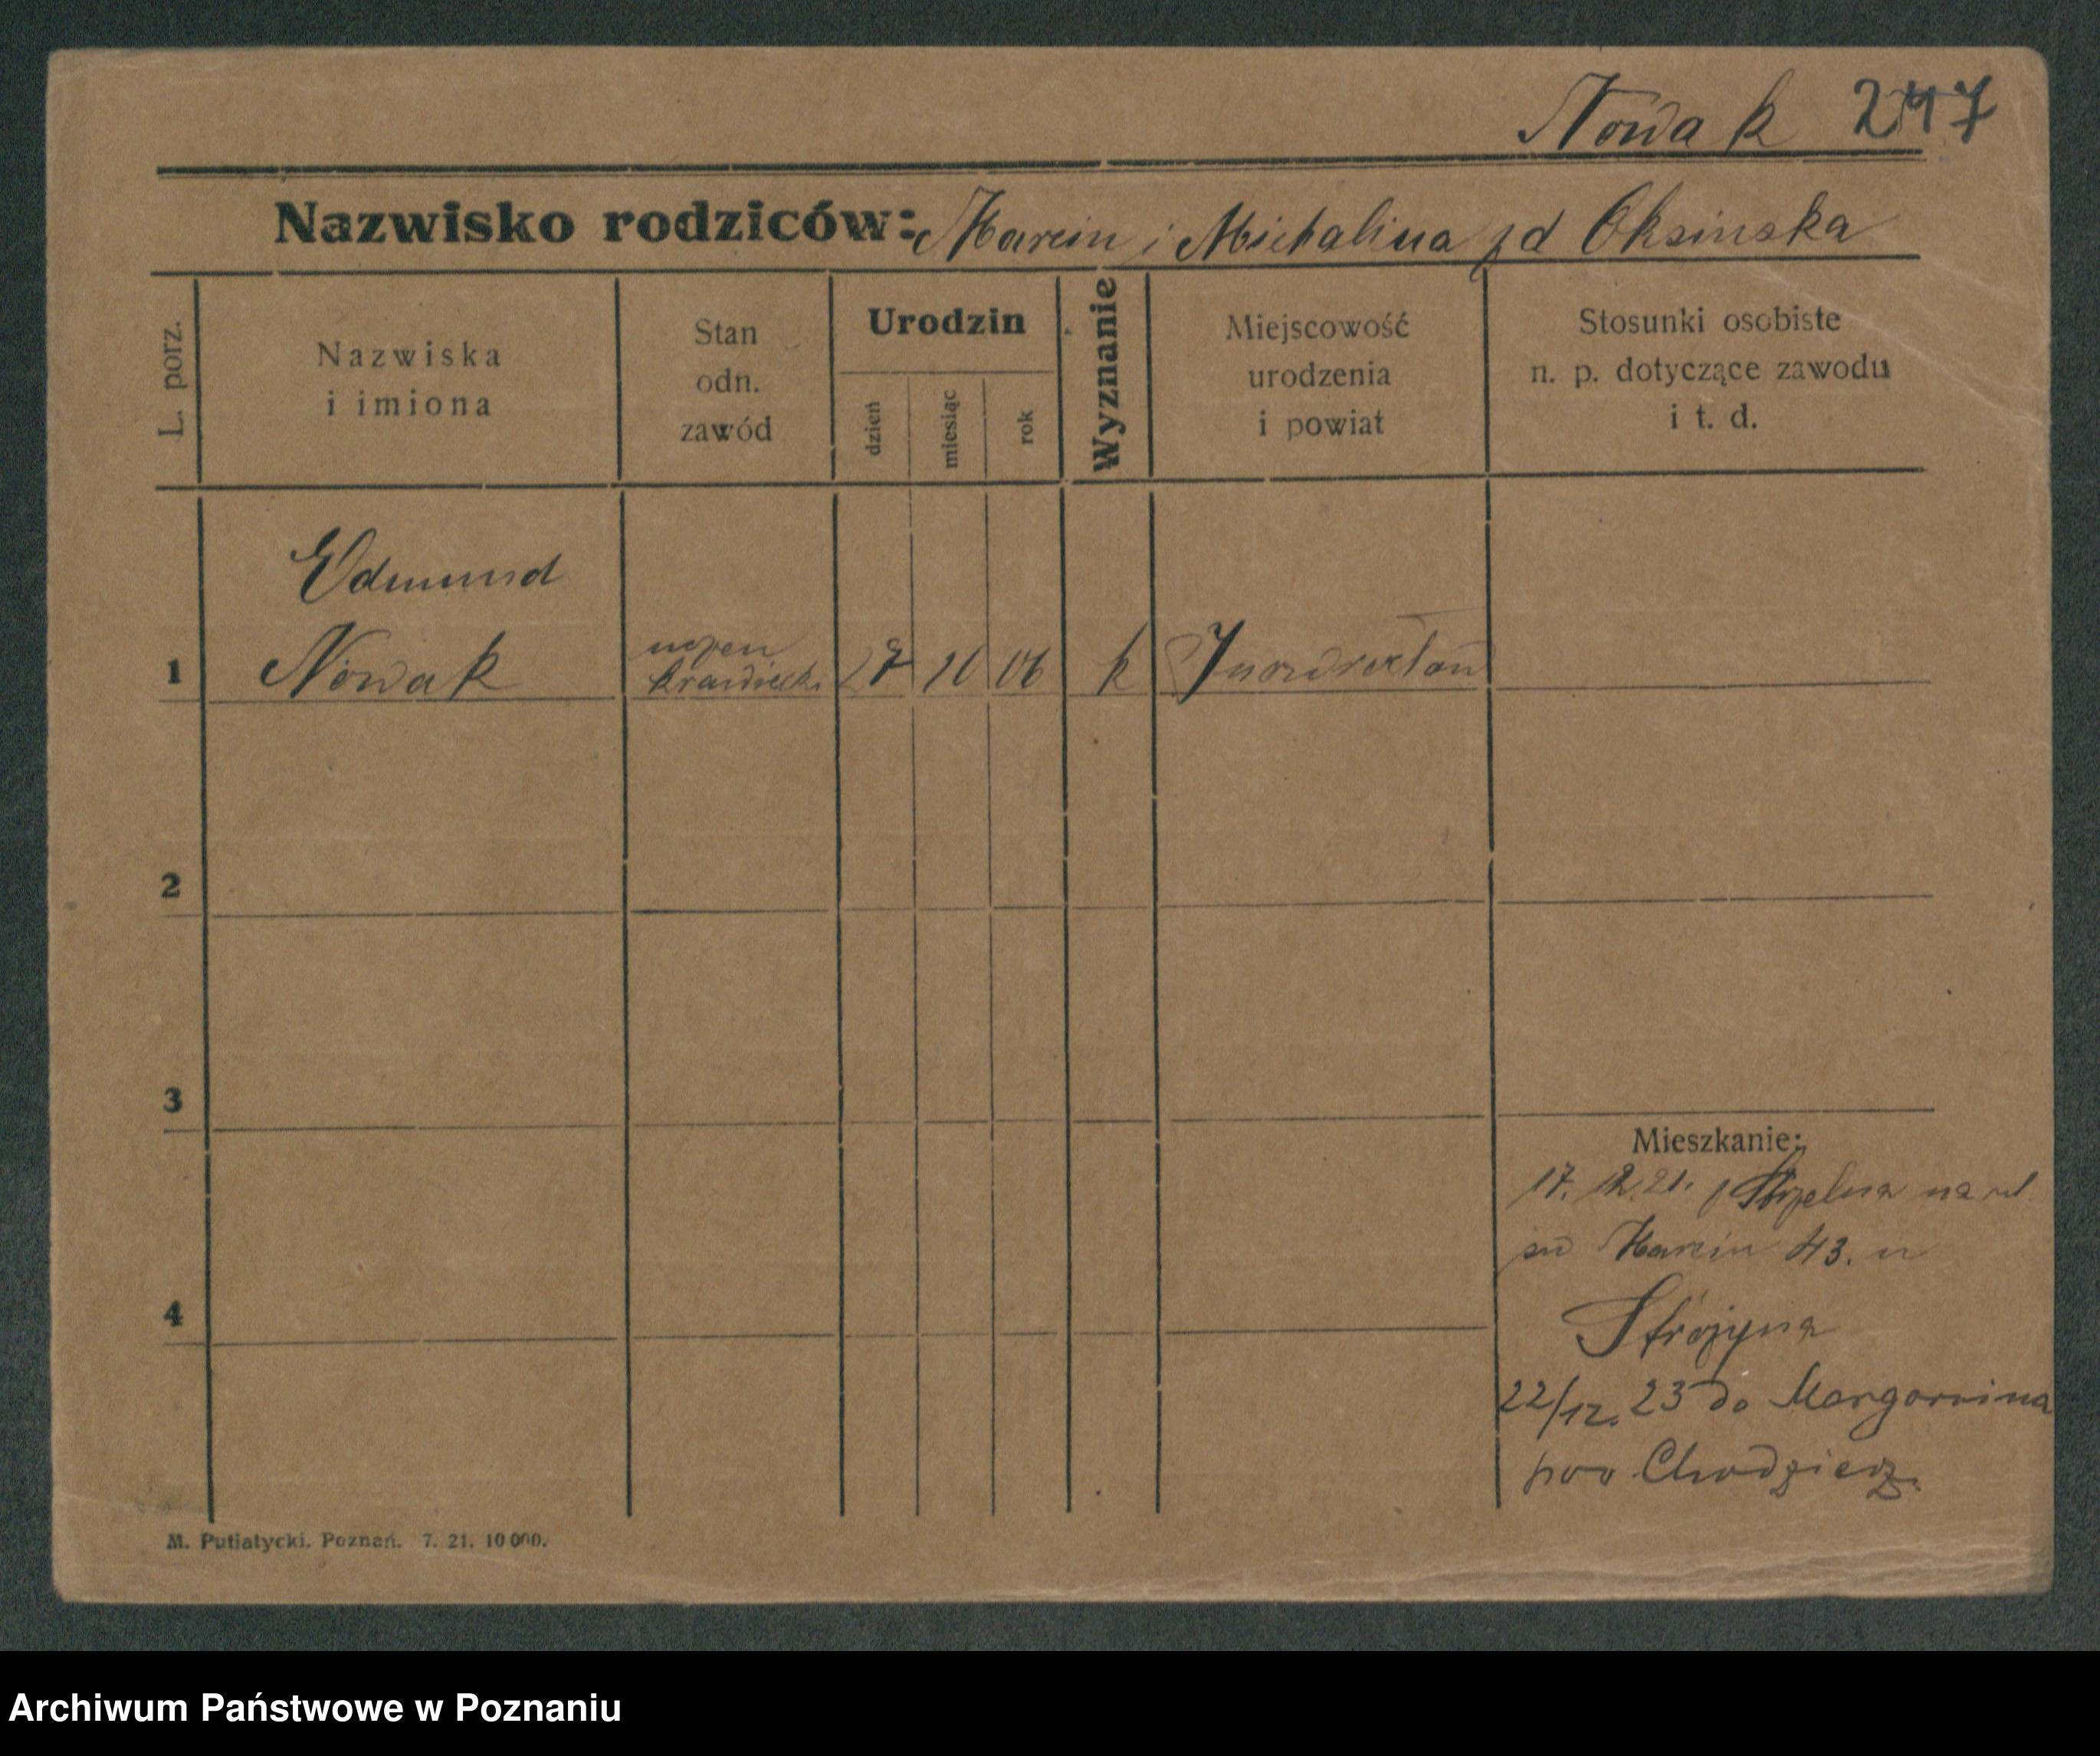 Nowak 247
Nazwisko rodziców: Marcin i Michalina zd Oksinska
L. porz.
Nazwiska
i imiona
Stan
odn.
zawód
Urodzin
dzień
miesiąc
rok
Wyznanie
Miejscowość
urodzenia
i powiat
Stosunki osobiste
n. p. dotyczące zawodu
i t. d.
Edmund
1 Nowak
uczeń
krawiecki
27 10 06 k Inowrocław
2
3
Mieszkanie:
17. 12. 21. z Strzelna na ul.
św Marcin 43. u
4
Stróżyna
22/12. 23 do Margonina
pow Chodzież.
M. Putiatycki. Poznań. 7. 21. 10 000.
Archiwum Państwowe w Poznaniu